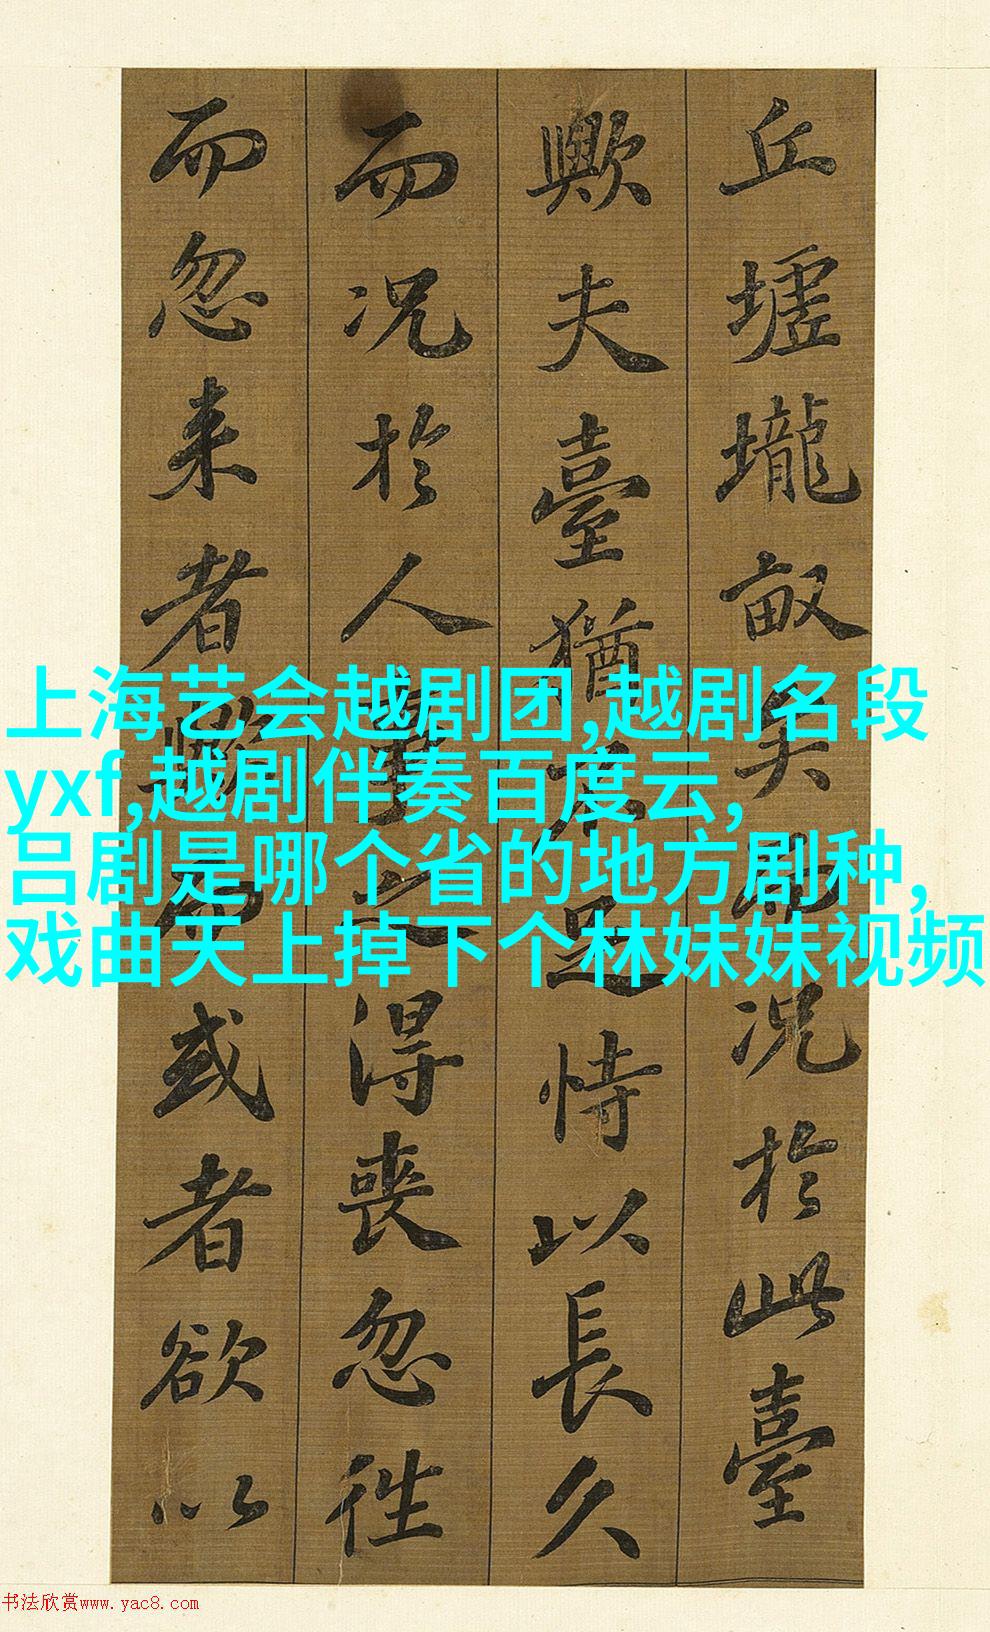 丘墟壠畝矣而况於此臺
歟夫臺猶不足恃以長久
而况於人事之得喪忽徃
而忽来者歟而或者欲以
上海艺会越剧团,越剧名段
yxf,越剧伴奏百度云,
吕剧是哪个省的地方剧种,
戏曲天上掉下个林妹妹视频
书法欣赏www.yac8.com